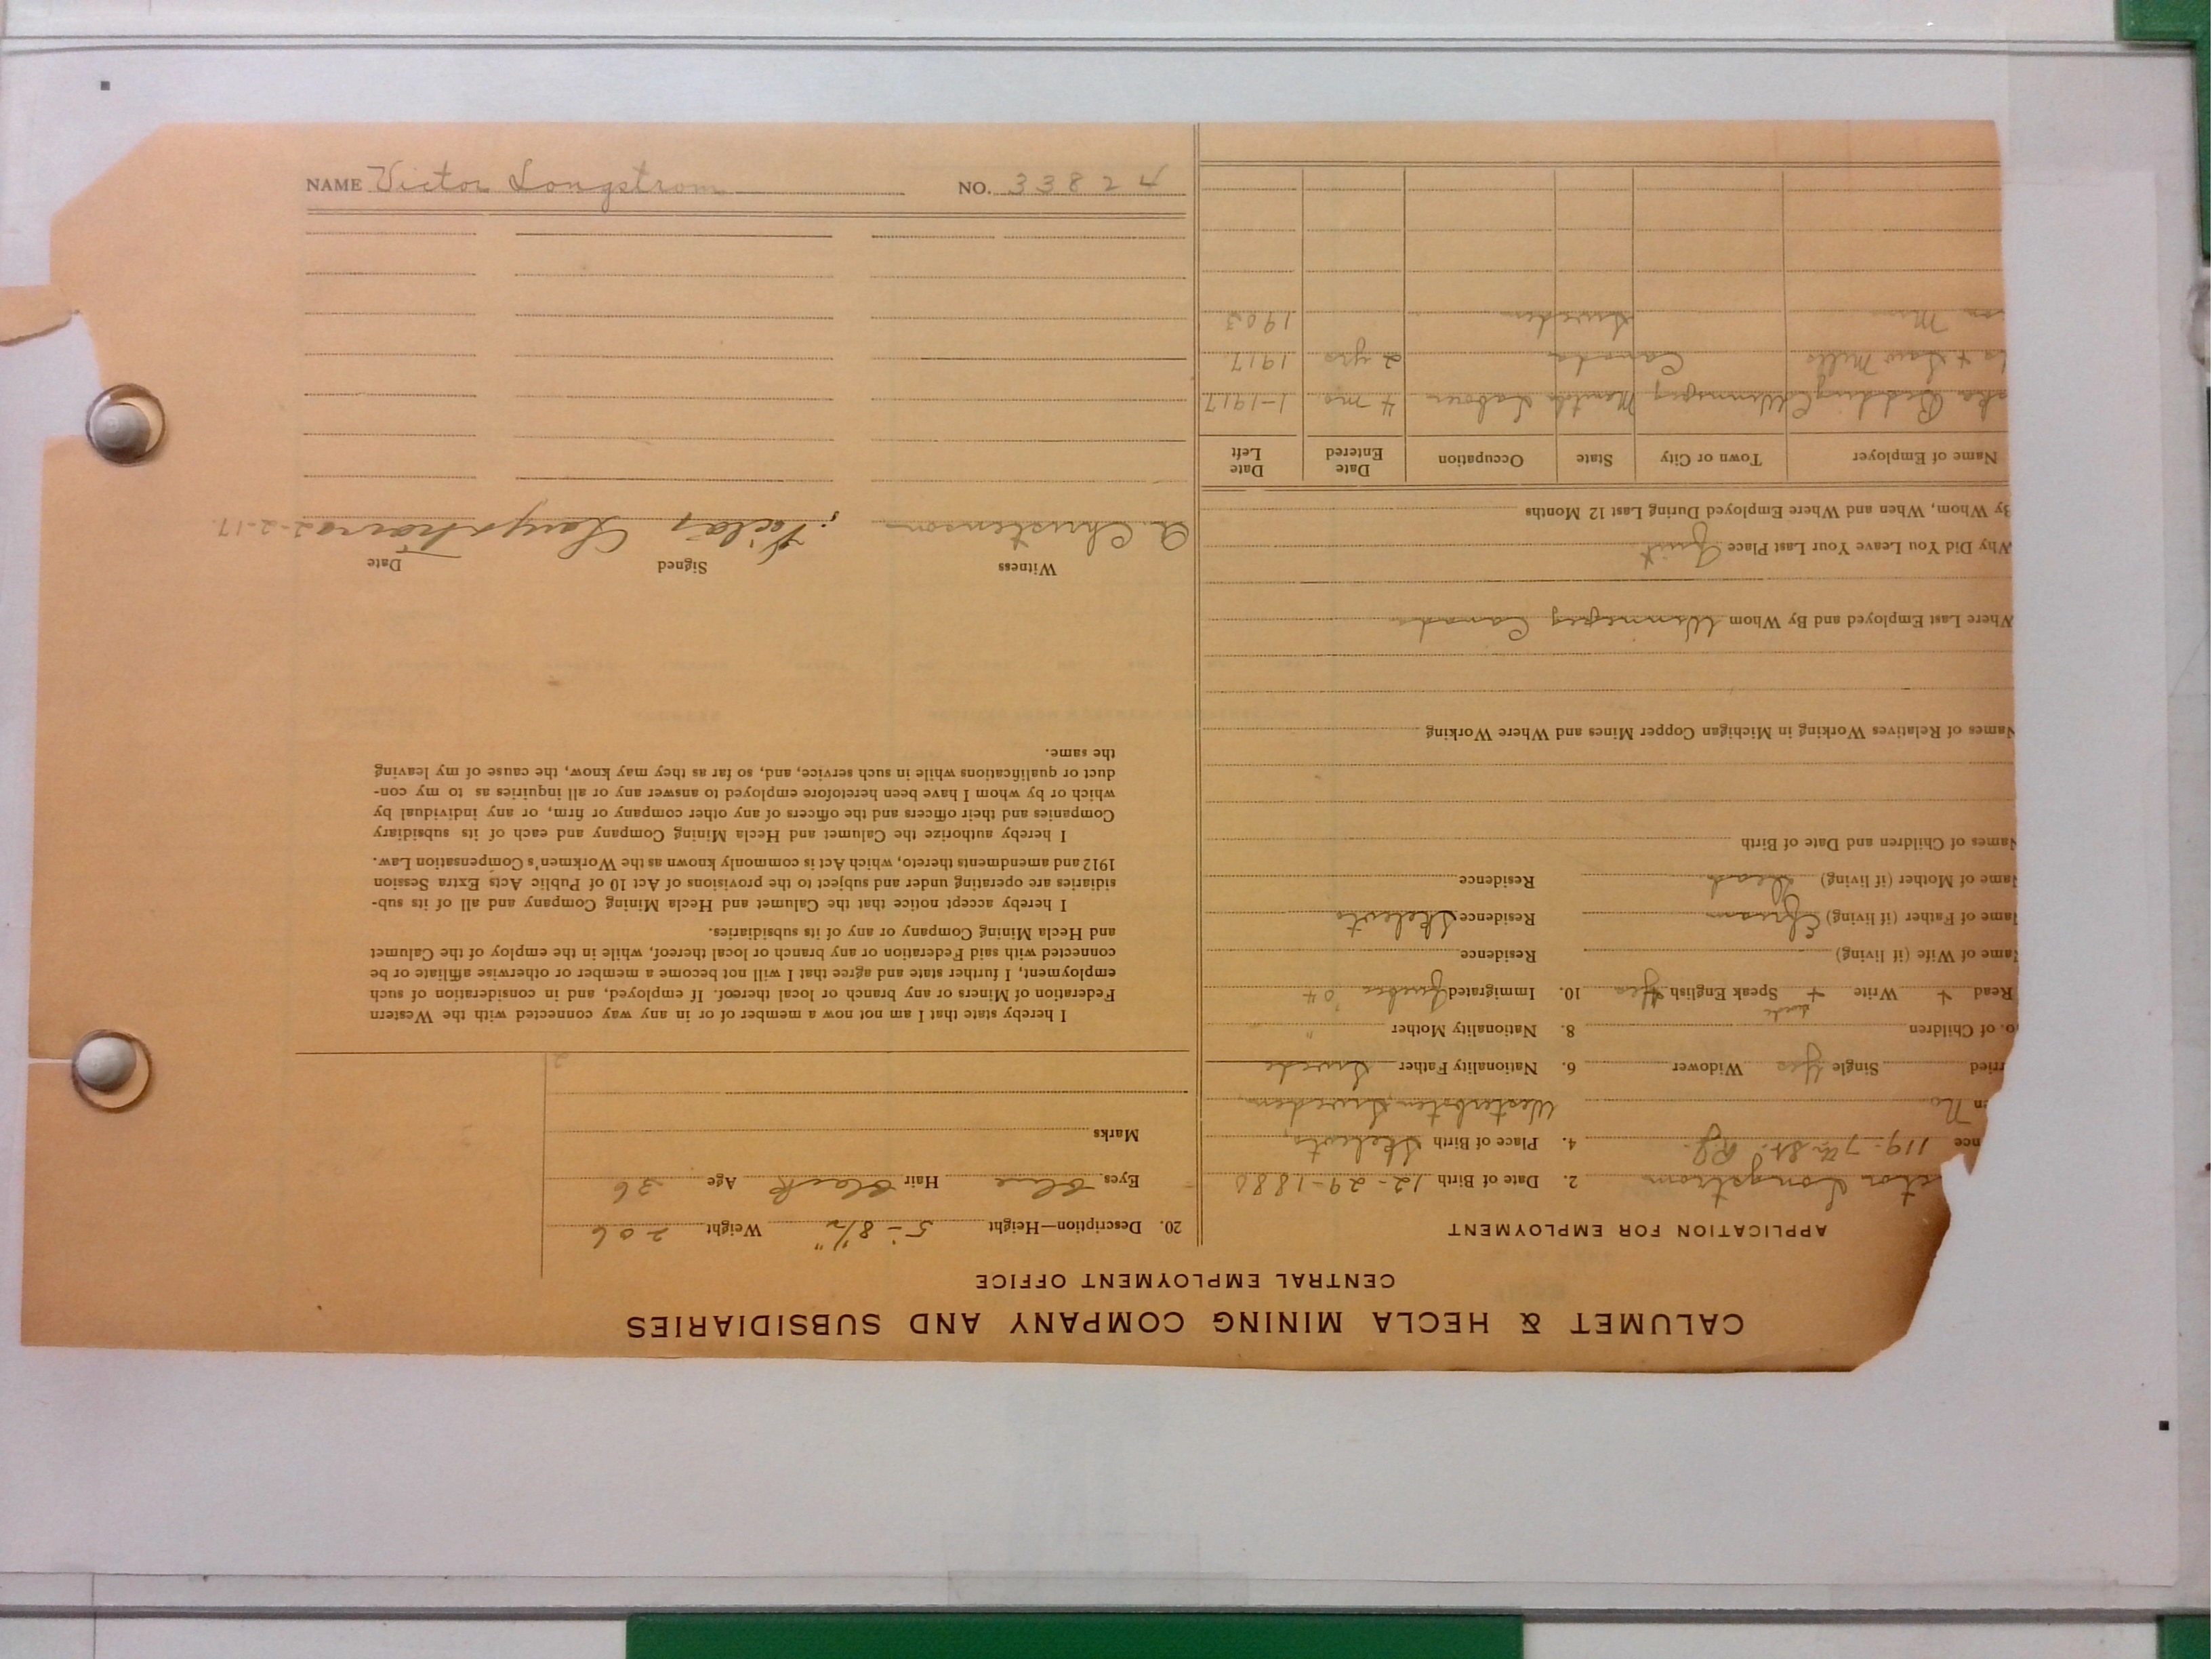 NAME Victor Longstrom NO. 33824
CALUMET & HECLA MINING COMPANY AND SUBSIDIARIES
CENTRAL EMPLOYMENT OFFICE
APPLICATION FOR EMPLOYMENT
ctor Longstrom 2. Date of Birth 12-29-1880
nce 119-7th St. 4. Place of Birth
en No Sweden
rried Single Yes Widower 6. Nationality Father Swede
o. of Children 8. Nationality Mother "
Read + Write + Speak English Yes 10. Immigrated 04
Name of Wife (if living) Residence
Name of Father (if living) Residence
Name of Mother (if living) Dead Residence
Names of Children and Date of Birth
Names of Relatives Working in Michigan Copper Mines and Where Working
Where Last Employed and By Whom Winnipeg Canada
Why Did You Leave Your Last Place Quit
By Whom, When and Where Employed During Last 12 Months
Name of Employer Town or City State Occupation Date Entered Date Left
Bedding Co Winnipeg Manitb Laborer 4 mo 1-1917
+ Saw Mills Canada 2 yrs 1917
on Sweden 1903
20. Description—Height 5'-8½" Weight 206
Eyes Blue Hair Black Age 36
Marks
I hereby state that I am not now a member of or in any way connected with the Western
Federation of Miners or any branch or local thereof. If employed, and in consideration of such
employment, I further state and agree that I will not become a member or otherwise affiliate or be
connected with said Federation or any branch or local thereof, while in the employ of the Calumet
and Hecla Mining Company or any of its subsidiaries.
I hereby accept notice that the Calumet and Hecla Mining Company and all of its sub-
sidiaries are operating under and subject to the provisions of Act 10 of Public Acts Extra Session
1912 and amendments thereto, which Act is commonly known as the Workmen's Compensation Law.
I hereby authorize the Calumet and Hecla Mining Company and each of its subsidiary
Companies and their officers and the officers of any other company or firm, or any individual by
which or by whom I have been heretofore employed to answer any or all inquiries as to my con-
duct or qualifications while in such service, and, so far as they may know, the cause of my leaving
the same.
Witness Signed Date
A. Christenson 2-2-17.